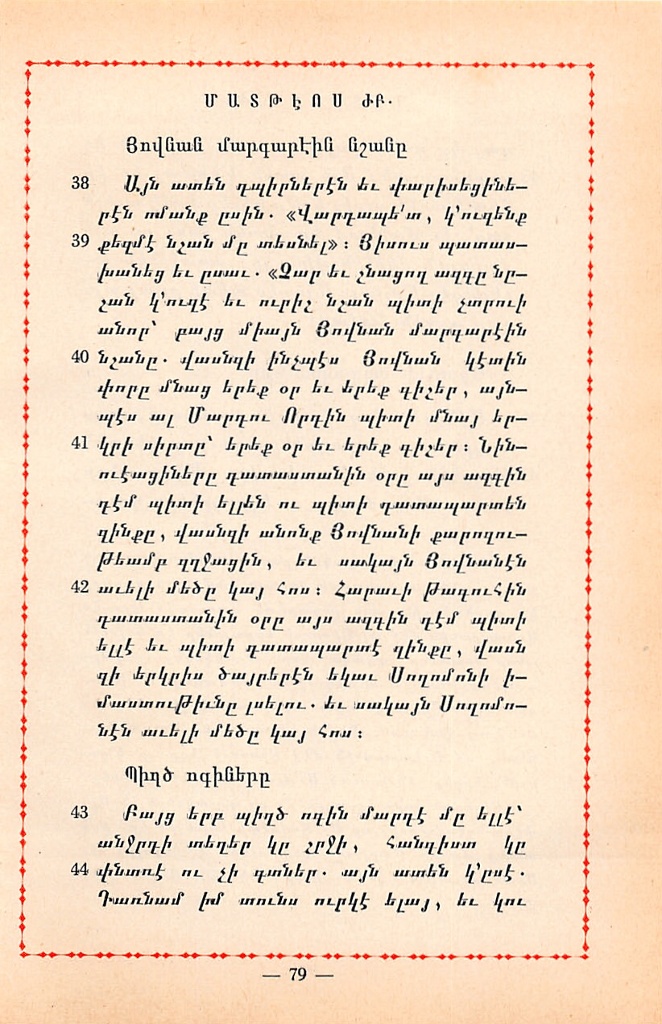 ՄԱՏԹԷՈՍ ԺԲ.
Յովնան մարգարէին նշանը
38 Այն ատեն դպիրներէն եւ փարիսեցինե–
րէն ոմանք ըսին. «Վարդապե՛տ, կ՚ուզենք
39 քեզմէ նշան մը տեսնել»։ Յիսուս պատաս–
խանեց եւ ըսաւ. «Չար եւ շնացող ազգը նը–
շան կ՚ուզէ եւ ուրիշ նշան պիտի չտրուի
անոր՝ բայց միայն Յովնան մարգարէին
40 նշանը. վասնզի ինչպէս Յովնան կէտին
փորը մնաց երեք օր եւ երեք գիշեր, այն–
պէս ալ Մարդու Որդին պիտի մնայ եր–
41 կրի սիրտը՝ երեք օր եւ երեք գիշեր։ Նին–
ուէացիները դատաստանին օրը այս ազգին
դէմ պիտի ելլեն ու պիտի դատապարտեն
զինքը, վասնզի անոնք Յովնանի քարոզու–
թեամբ զղջացին, եւ սակայն Յովնանէն
42 աւելի մեծը կայ հոս։ Հարաւի թագուհին
դատաստանին օրը այս ազգին դէմ պիտի
ելլէ եւ պիտի դատապարտէ զինքը, վասն
զի երկրիս ծայրերէն եկաւ Սողոմոնի ի–
մաստութիւնը լսելու. եւ սակայն Սողոմո–
նէն աւելի մեծը կայ հոս։
Պիղծ ոգիները
43 Բայց երբ պիղծ ոգին մարդէ մը ելլէ՝
անջրդի տեղեր կը շրջի, հանգիստ կը
44 փնտռէ ու չի գտներ. այն ատեն կ՚ըսէ.
Դառնամ իմ տունս ուրկէ ելայ, եւ կու
— 79 —